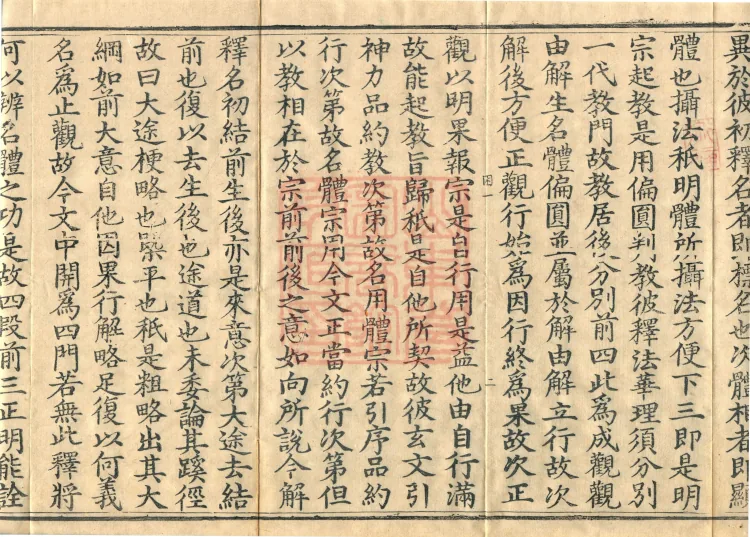 異於彼初釋名者即標名也次體相者即顯
體也攝法秖明體所攝法方便下三即是明
宗起教是用偏圓判教彼釋法華理須分別
一代教門故教居後分別前四此爲成觀觀
由解生名體偏圓並屬於解由解立行故次
解後方便正觀行始爲因行終爲果故次正
用一
二
觀以明果報宗是自行用是益他由自行滿
故能起教旨歸秖是自他所契故彼玄文引
神力品約教次第故名用體宗若引序品約
行次第故名體宗用今文正當約行次第但
以教相在於宗前前後之意如向所說今解
釋名初結前生後亦是來意次第大途去結
前也復以去生後也途道也未委論其蹊徑
故曰大途梗略也槩平也秖是粗略出其大
綱如前大意自他因果行解略足復以何義
名爲止觀故今文中開爲四門若無此釋將
何以辨名體之功是故四段前三正明能詮